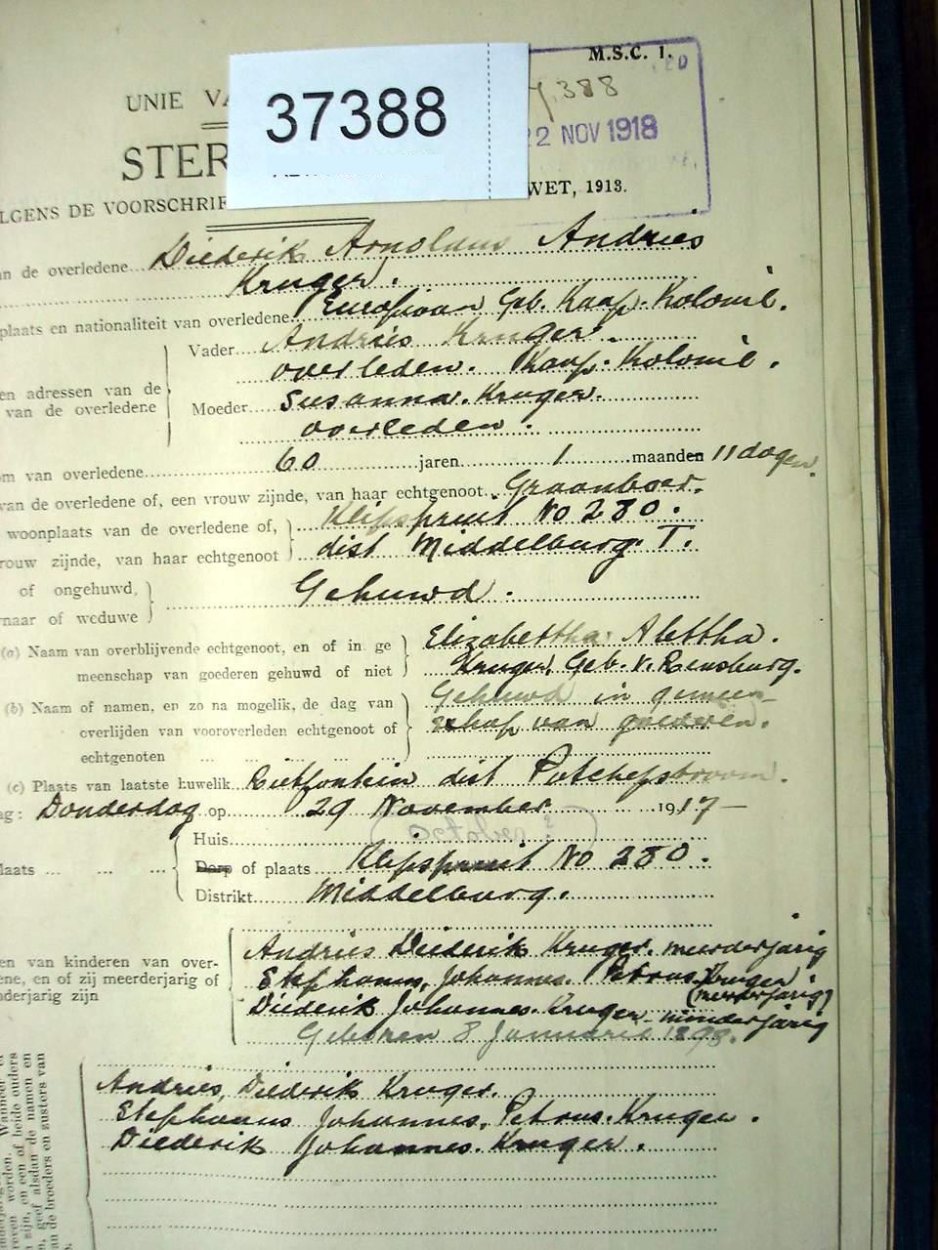 M.S.C. 1.
UNIE VA
37388
7,388
22 NOV 1918
STER
LGENS DE VOORSCHRIF WET, 1913.
an de overledene Diederik Arnoldus Andries
Kruger.
plaats en nationaliteit van overledene Europiaan Geb. Kaap. Kolonie.
Vader Andries Kruger.
overleden. Kaap. Kolonie.
en adressen van de
van de overledene
Moeder Susanna. Kruger.
overleden.
om van overledene 60 jaren 1 maanden 11 dagen.
van de overledene of, een vrouw zijnde, van haar echtgenoot Graanboer.
woonplaats van de overledene of, Klipspruit No 280.
rouw zijnde, van haar echtgenoot dist Middelburg. T.
of ongehuwd, Gehuwd.
naar of weduwe
(a) Naam van overblijvende echtgenoot, en of in ge Elizabettha. Alettha.
meenschap van goederen gehuwd of niet Kruger Geb. v. Rensburg.
(b) Naam of namen, en zo na mogelik, de dag van Gehuwd in gemeen-
overlijden van vooroverleden echtgenoot of schap van goederen.
echtgenoten
(c) Plaats van laatste huwelik Rietfontein dist Potchefstroom.
ag: Donderdag op 29 November 1917-
Huis
laats Dorp of plaats Klipspruit No 280.
Distrikt Middelburg.
en van kinderen van over- Andries Diederik Kruger. meerderjarig
ene, en of zij meerderjarig of Stephanus, Johannes. Petrus. Kruger
(meerderjarig)
nderjarig zijn Diederik Johannes. Kruger minderjarig
Geboren 8 Januarie 1898.
Andries, Diederik Kruger.
Stephanus Johannes, Petrus. Kruger.
Diederik Johannes. Kruger.
Wanneer
reven worden.
zijn, en een of beide ouders
geef alsdan de namen en
an de broeders en zusters van